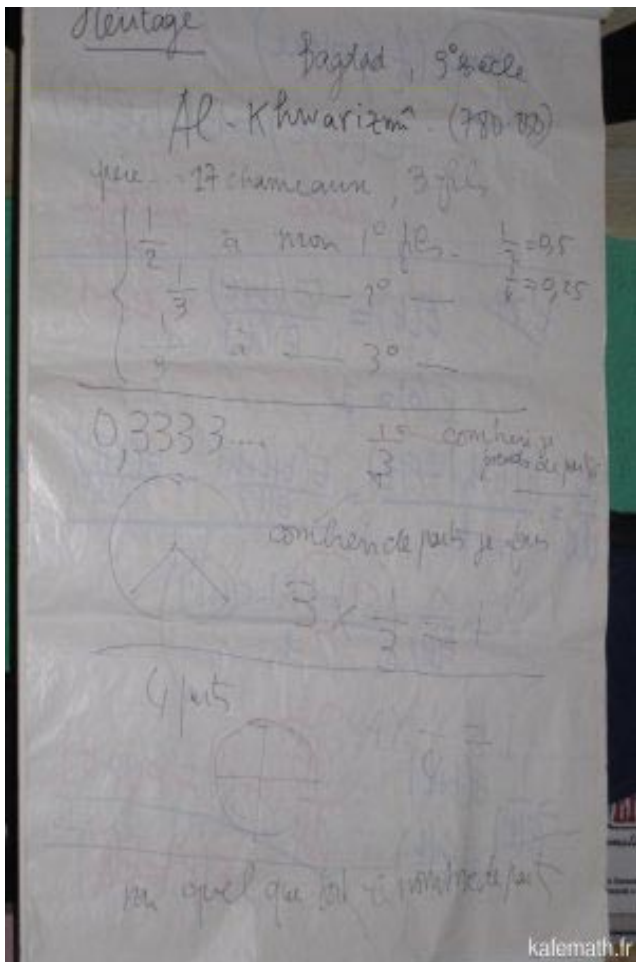 Héritage
Bagdad, 9° siècle
Al-Khwarizmî (780-850)
père ... 17 chameaux, 3 fils
1/2 à mon 1° fils. 1/2 = 0,5
1/3 2° 1/4 = 0,25
1/9 à 3°
0,3333....
1 combien je prends de parts
3
combien de parts je fais
3 × 1/3 = 1
4 parts
quel que soit nombre de parts
kafemath.fr